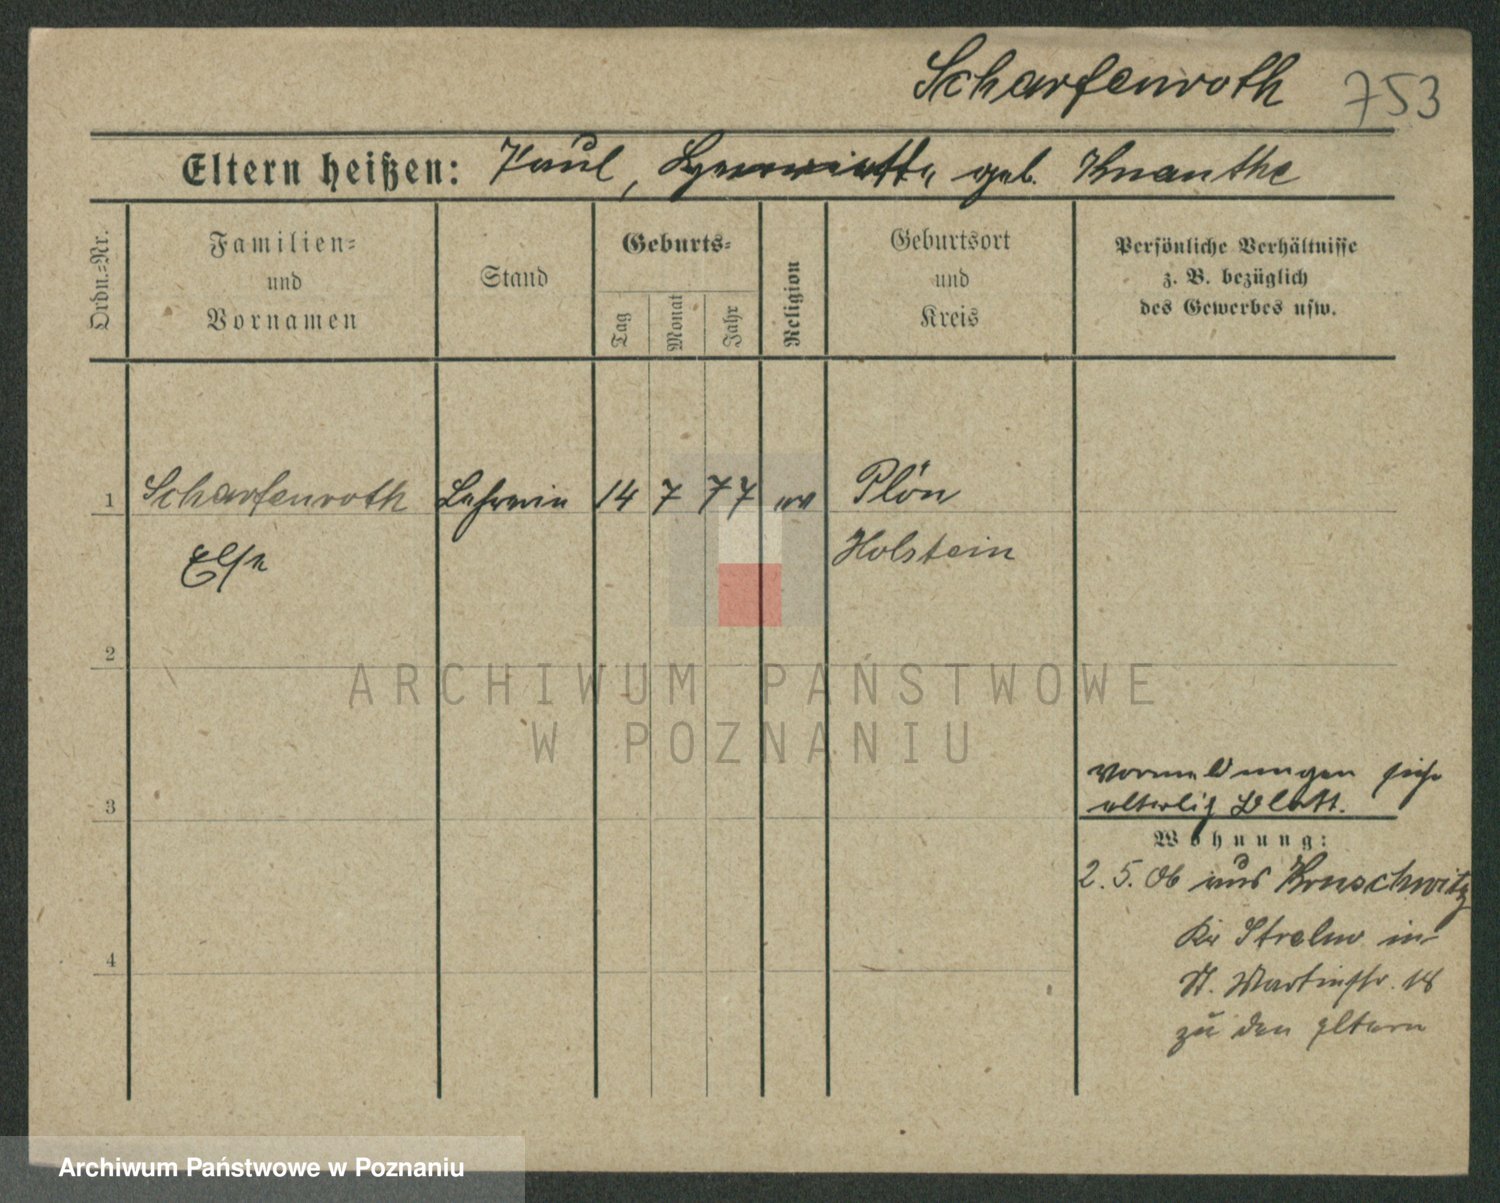 Scharfenroth 753
Eltern heißen: Paul, Henriette geb. Knauthe
Ordn.=Nr.
Familien=
und
Vornamen
Stand
Geburts=
Tag
Monat
Jahr
Religion
Geburtsort
und
Kreis
Persönliche Verhältnisse
z. B. bezüglich
des Gewerbes usw.
1 Scharfenroth Lehrerin 14 7 77 ev Plön
Else Holstein
2
ARCHIWUM PAŃSTWOWE
W POZNANIU
Vormeldungen siehe
elterlich Blatt.
3
Wohnung:
2. 5. 06 aus Kruschwitz
Kr Strelno in
St. Martinstr. 18
zu den Eltern
4
Archiwum Państwowe w Poznaniu